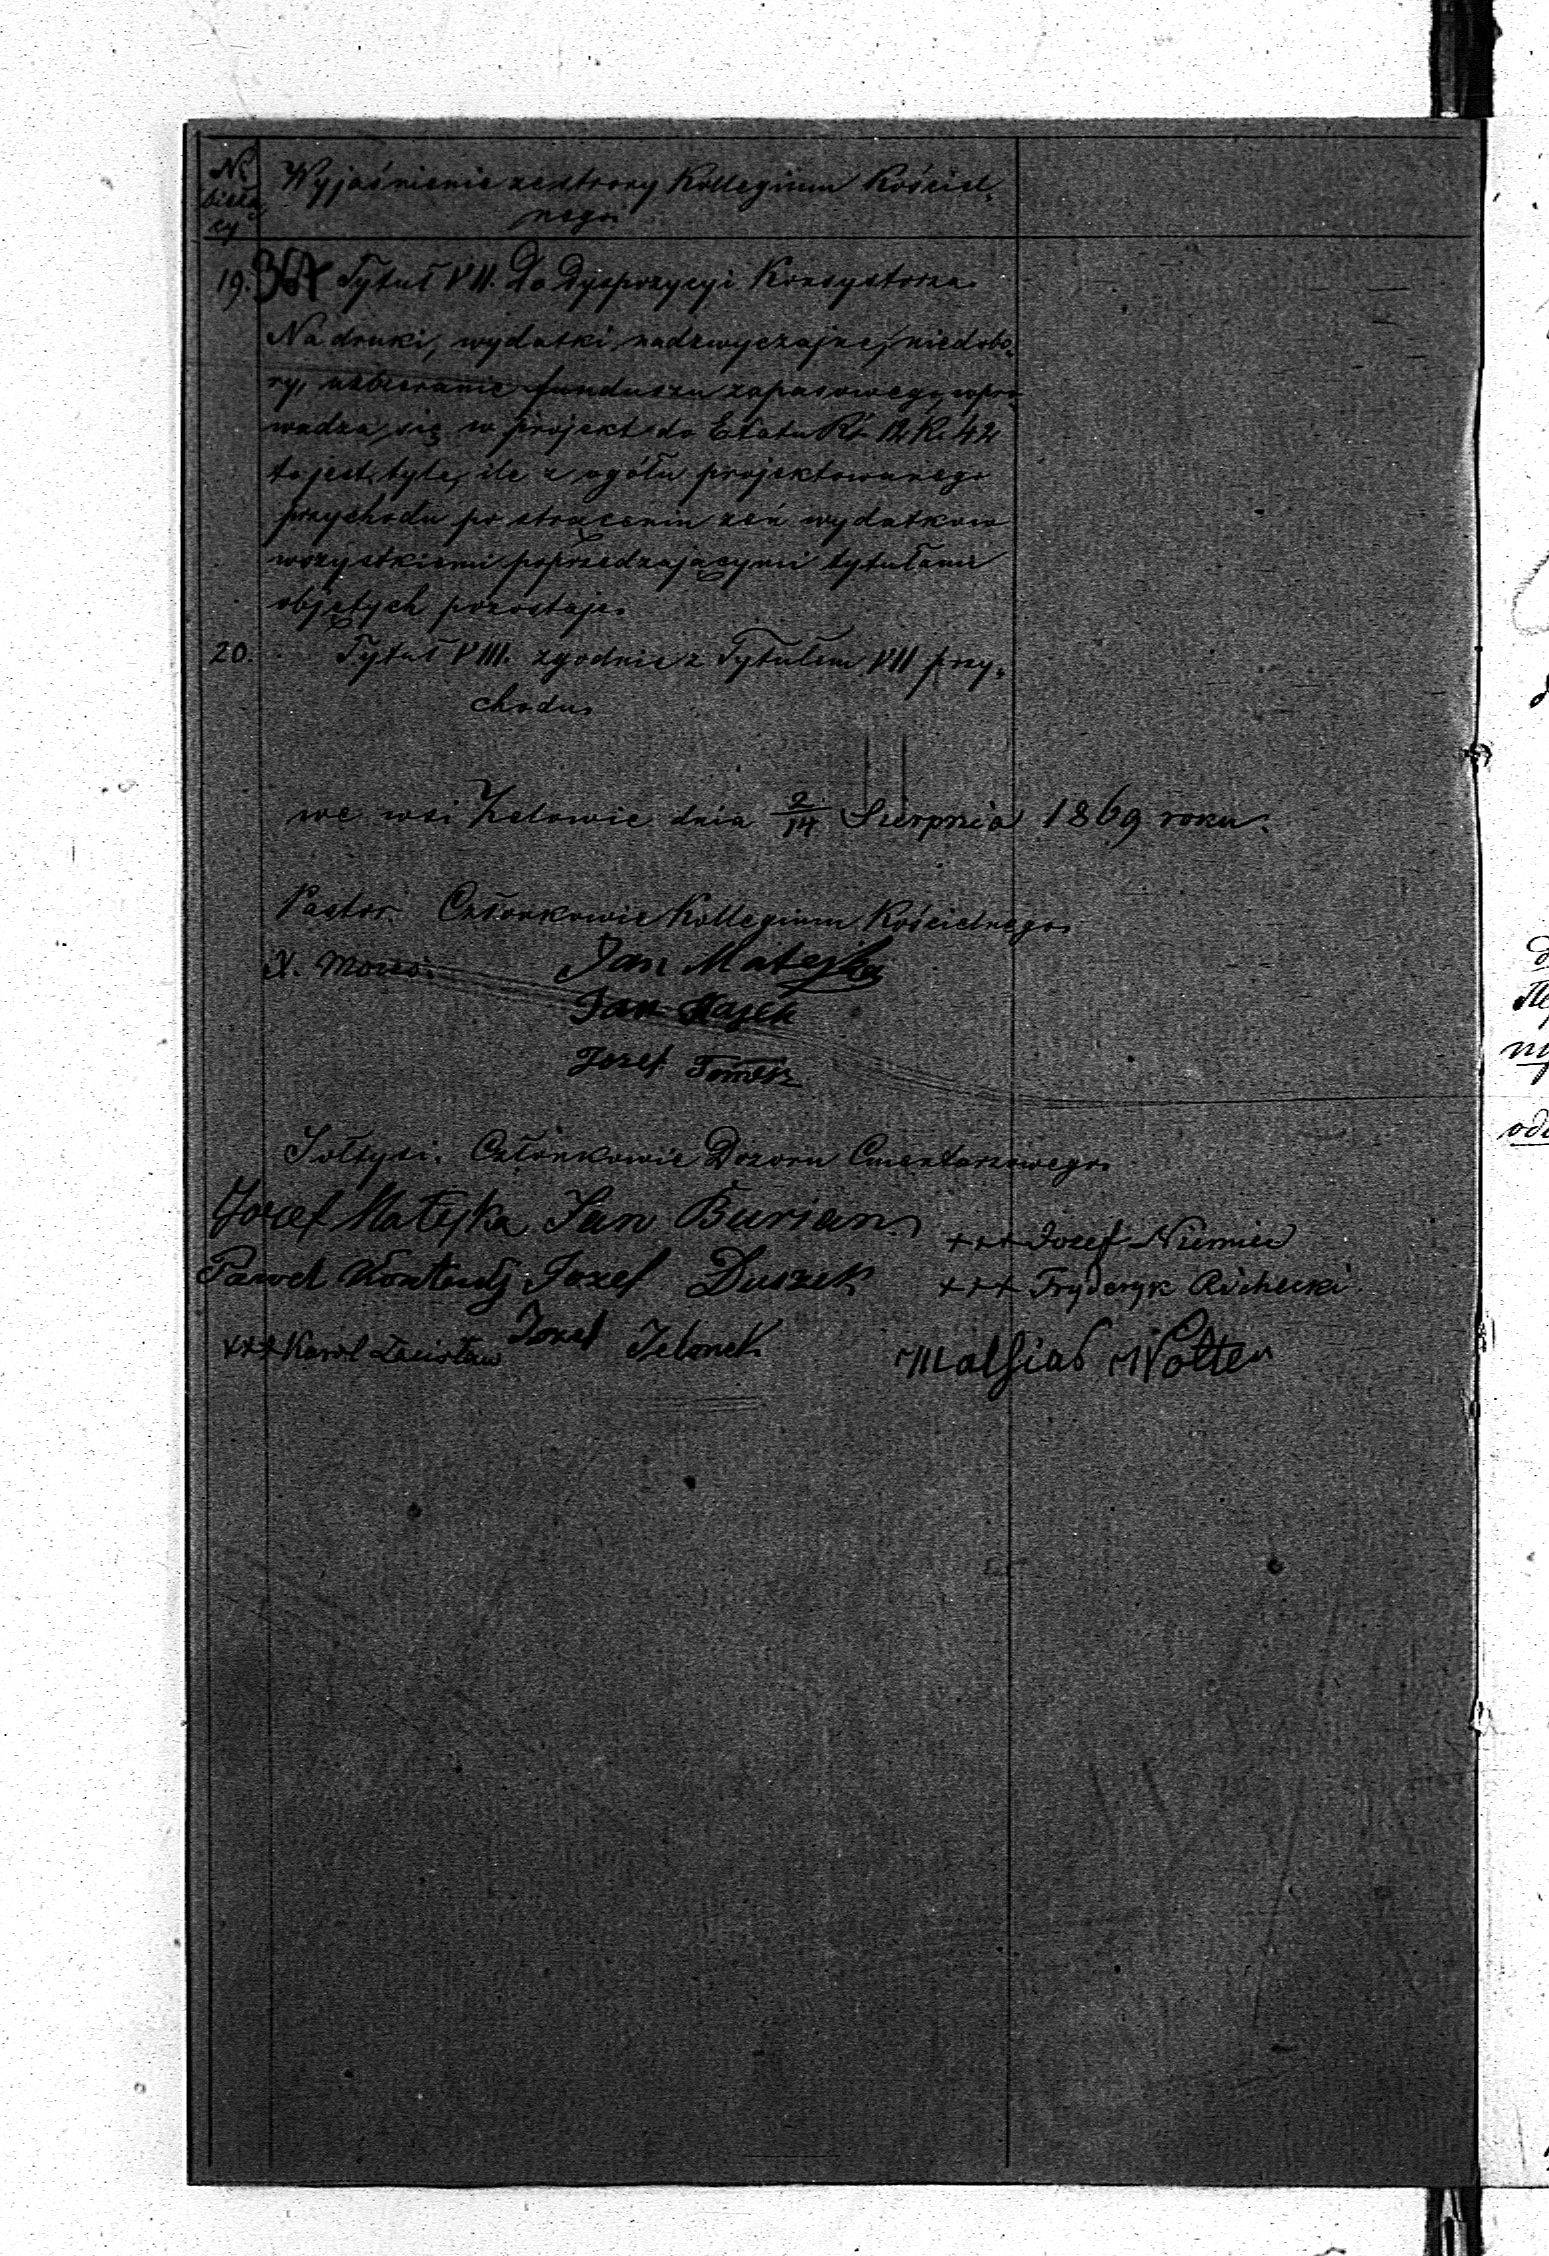 Nr bieżą cy
Wyjaśnienie ze strony Kollegium Kościel-
nego
19. Tytuł VII. Do Dyspozycyi Konsystorza.
Na druki, wydatki nadzwyczajne, niedobo-
ry, uzbieranie funduszu zapasowego, wpro-
wadza się w projekt do Etatu Rs 12 K. 42
to jest tyle, ile z ogółu projektowanego
przychodu po strąceniu zeń wydatków
wszystkiemi poprzedzającymi tytułami
objętych pozostaje.
20. Tytuł VIII. zgodnie z Tytułem VII przy-
chodu.
we wsi Zelowie dnia 2/14 Sierpnia 1869 roku.
Pastor. Członkowie Kollegium Kościelnego.
X. Jan Matejka
Jan
Jozef Tomesz
Sołtysi. Członkowie Dozoru Cmentarzowego.
Jozef Matejka Jan Burian +++ Jozef Niemiec
Paweł Jozef Duszek +++ Fryderyk
+++ Karol Jozef Jelonek Mathias Wolter